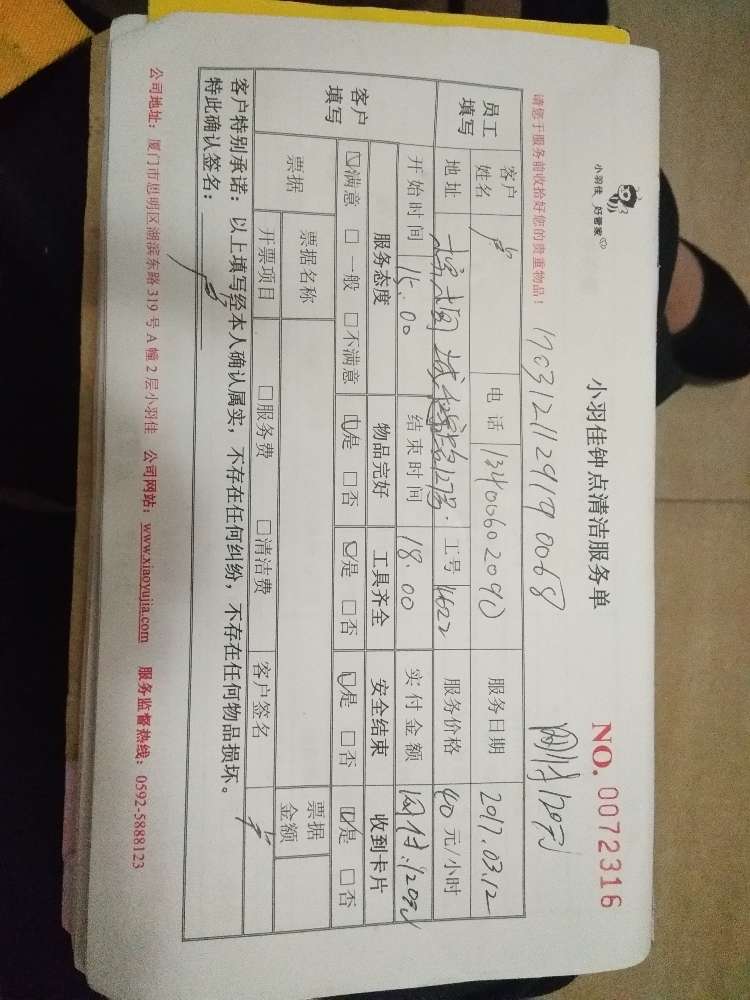 小羽佳 好管家
小羽佳钟点清洁服务单
NO. 0072316
请您于服务前收拾好您的贵重物品！
员工填写
客户姓名
电话 13400602090
服务日期 2017.03.12
地址
工号 1622
服务价格 40 元/小时
开始时间 15.00
结束时间 18.00
实付金额
客户填写
服务态度 物品完好 工具齐全 安全结束 收到卡片
☑满意 □一般 □不满意 ☑是 □否 ☑是 □否 ☑是 □否 ☑是 □否
票据 票据名称 票据金额
开票项目 □服务费 □清洁费 客户签名
客户特别承诺：以上填写经本人确认属实，不存在任何纠纷，不存在任何物品损坏。
特此确认签名：
公司地址：厦门市思明区湖滨东路 319 号 A 幢 2 层小羽佳 公司网站：www.xiaoyujia.com 服务监督热线：0592-5888123